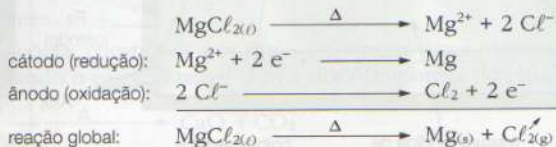 MgCℓ₂₍ℓ₎ —Δ→ Mg²⁺ + 2 Cℓ⁻
cátodo (redução): Mg²⁺ + 2 e⁻ ⟶ Mg
ânodo (oxidação): 2 Cℓ⁻ ⟶ Cℓ₂ + 2 e⁻
reação global: MgCℓ₂₍ℓ₎ —Δ→ Mg₍s₎ + Cℓ₂₍g₎↗